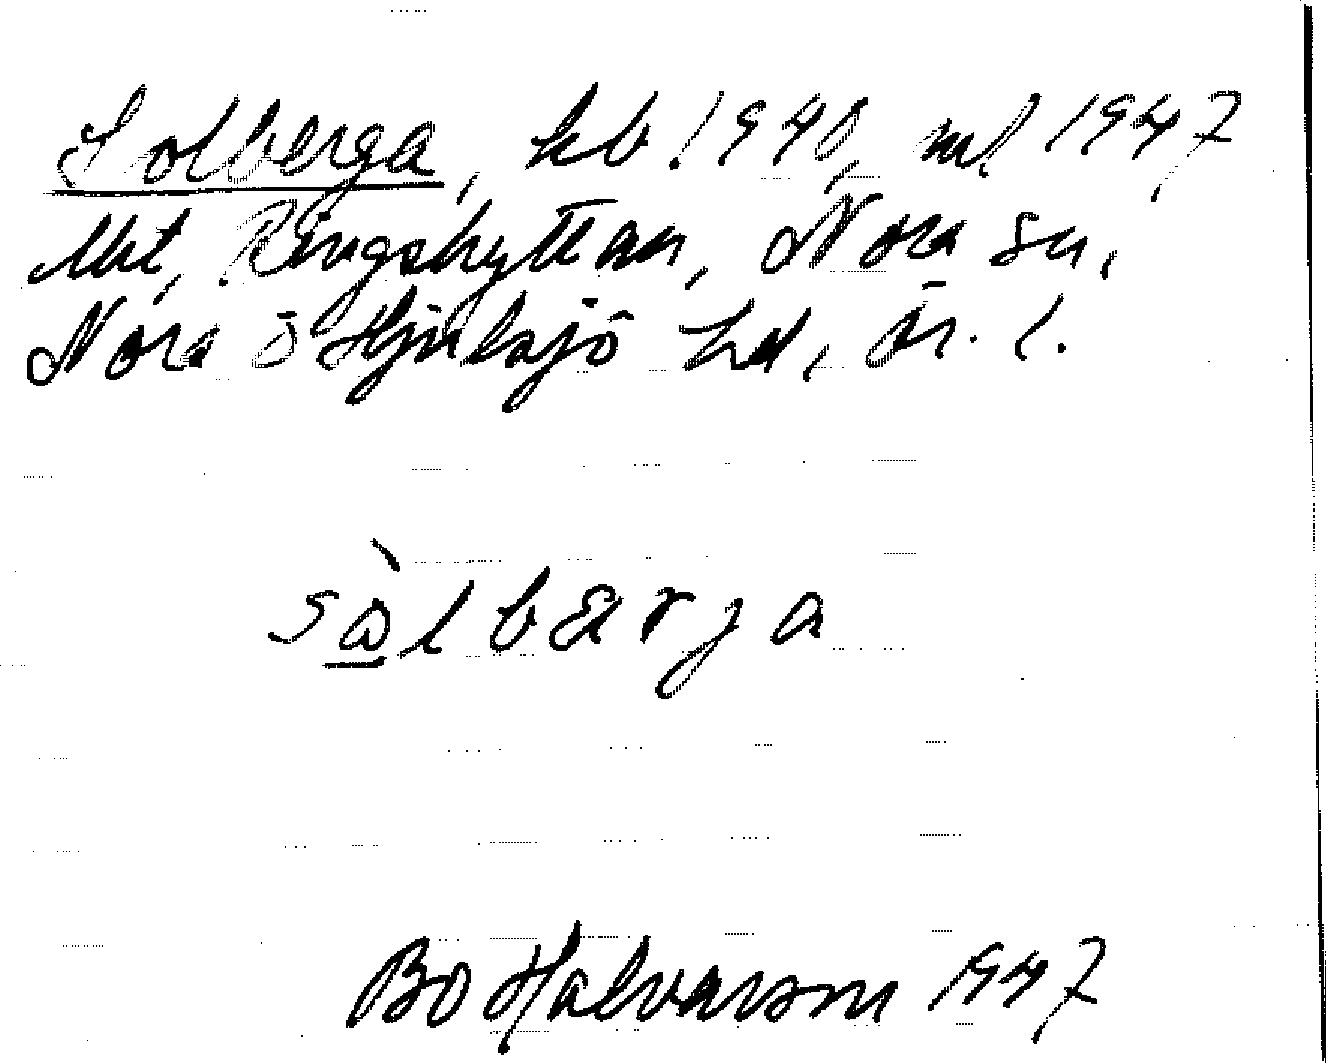 Solberga, kb 1940, ml 1947
Mt, Ringshyttan, Nora sn,
Nora o Hjulsjö hd, Ör. l.
sålbærja
Bo Halvarson 1947